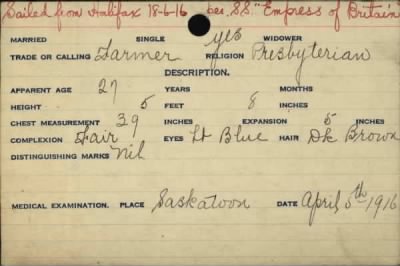 Sailed from Halifax 18-6-16 per S.S. "Empress of Britain
MARRIED SINGLE yes WIDOWER
TRADE OR CALLING Farmer RELIGION Presbyterian
DESCRIPTION.
APPARENT AGE 27 YEARS MONTHS
HEIGHT 5 FEET 8 INCHES
CHEST MEASUREMENT 39 INCHES EXPANSION 5 INCHES
COMPLEXION Fair EYES Lt Blue HAIR Dk Brown
DISTINGUISHING MARKS Nil
MEDICAL EXAMINATION. PLACE Saskatoon DATE April 5th 1916